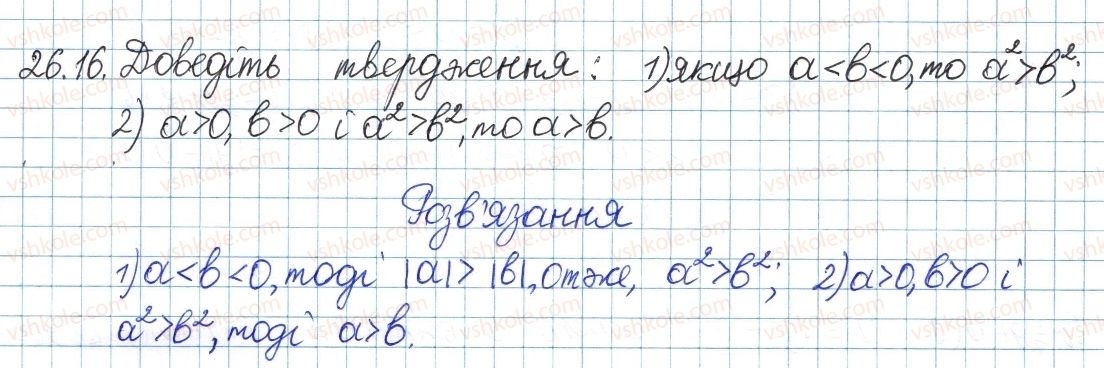 26.16. Доведіть твердження: 1) якщо a<b<0, то a²>b²;
2) a>0, b>0 і a²>b², то a>b.
Розв'язання
1) a<b<0, тоді |a|>|b|, отже, a²>b²; 2) a>0, b>0 і
a²>b², тоді a>b.